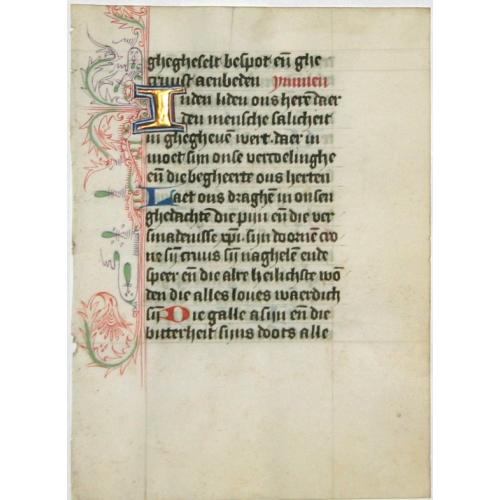 ghegheselt bespot eñ ghe
cruust aenbeden ymmen
Inden liden ons heren daer
den mensche salicheit
in ghegheuē wert daer in
moet sijn onse veruolinghe
eñ die begheerte ons herten
Laet ons draghen in onsen
ghedachtē die pijn eñ die ver
smadenisse xpi. sijn doornē cro
ne sij cruus sij naghelen ende
speer eñ die alre heilichste wō
den die alles loues waerdich
sij Die galle asijn eñ die
bitterheit sijns doots alle